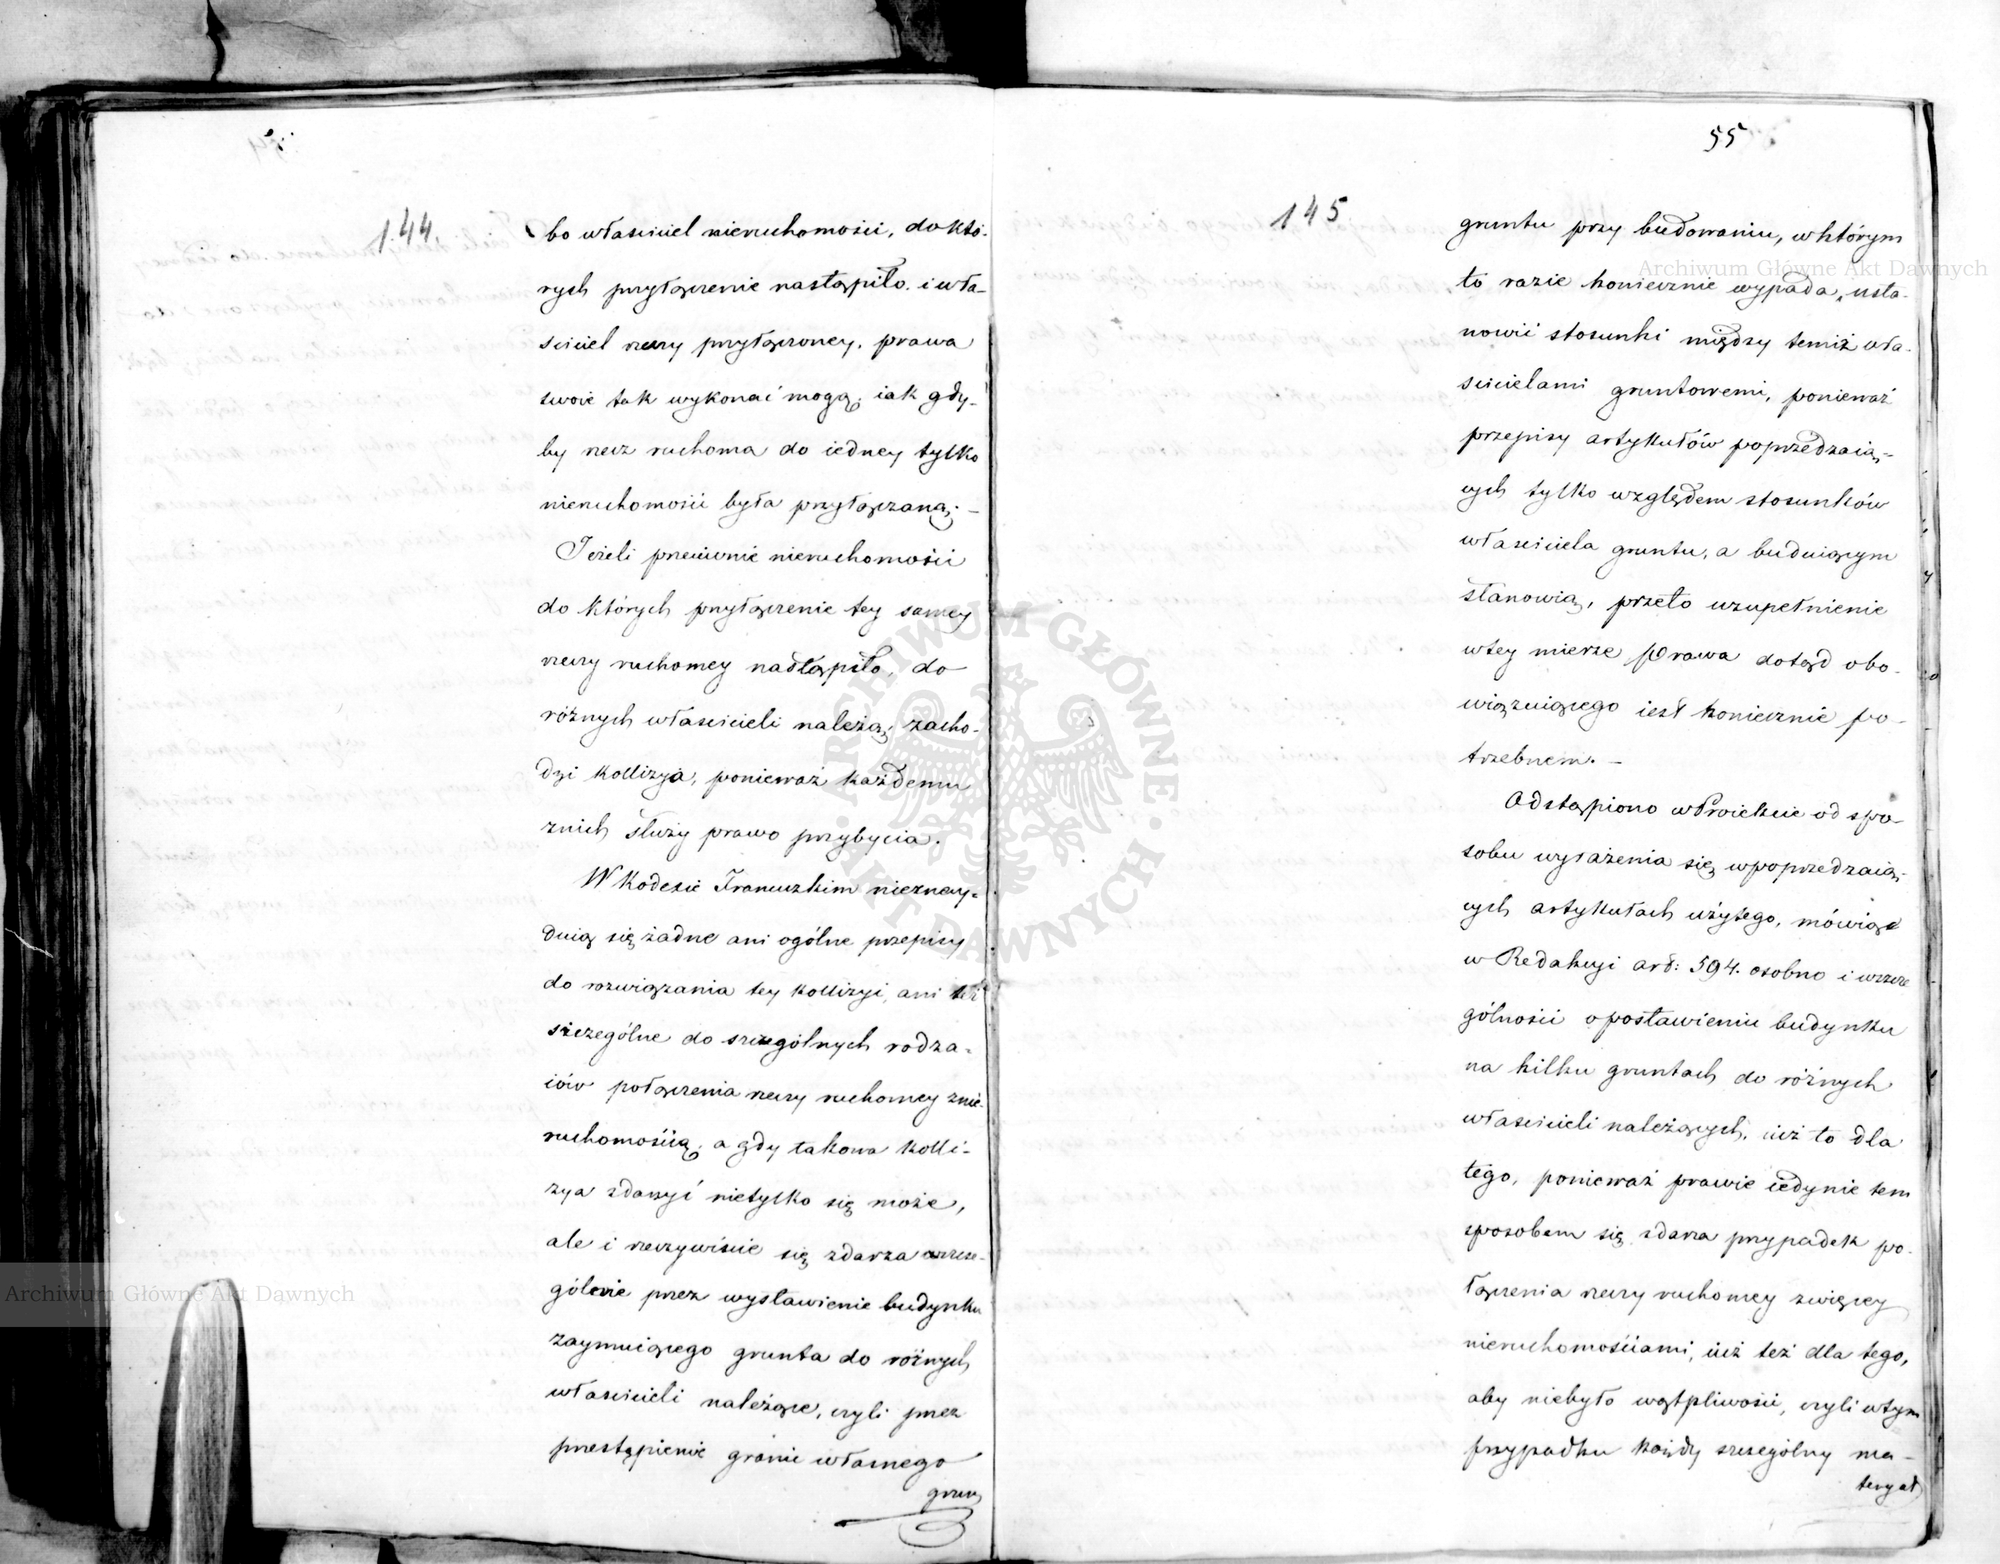 144.
bo właściciel nieruchomości, do któ-
rych przyłączenie nastąpiło. i wła-
ściciel rzeczy przyłączoney, prawa
swoie tak wykonać mogą, iak gdy-
by rzecz ruchoma do iedney tylko
nieruchomości była przyłączaną; –
Jeżeli przeciwnie nieruchomości
do których przyłączenie tey samey
rzeczy ruchomey nastąpiło, do
różnych właścicieli należą; zacho-
dzi kollizyia, ponieważ każdemu
znich służy prawo przybycia.
W Kodexie Francuzkim nieznay-
duią się żadne ani ogólne przepisy
do rozwiązania tey kollizyi, ani też
szczególne do szczególnych rodza-
iów połączenia rzeczy ruchomey znie-
ruchomością, a gdy takowa kolli-
zya zdarzyć nietylko się może,
ale i rzeczywiście się zdarza wszcze-
gólnie przez wystawienie budynku
zaymuiącego grunta do różnych
właścicieli należące, czyli przez
przestąpienie granic własnego
grun
55
145
gruntu przy budowaniu, w którym
to razie koniecznie wypada, usta-
nowić stosunki między temiż wła-
ścicielami gruntowemi, ponieważ
przepisy artykułów poprzedzaią-
cych tylko względem stosunków
właściciela gruntu, a buduiącym
stanowią, przeto uzupełnienie
wtey mierze prawa dotąd obo-
wiązuiącego iest koniecznie po-
trzebnem. –
Odstąpiono w Proiekcie od spo-
sobu wyrażenia się w poprzedzaią-
cych artykułach użytego, mówiąc
w Redakcyi art: 594. osobno i wszcze
gólności o postawieniu budynku
na kilku gruntach do różnych
właścicieli należących, iuż to dla
tego, ponieważ prawie iedynie tem
sposobem się zdarza przypadek po-
łączenia rzeczy ruchomey zwięcey
nieruchomościami, iuż też dla tego,
aby niebyło wątpliwości, czyli wtym
przypadku każdy szczególny ma-
teryał
Archiwum Główne Akt Dawnych
Archiwum Główne Akt Dawnych
ARCHIWUM GŁÓWNE AKT DAWNYCH